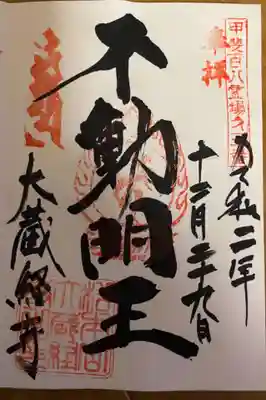 甲斐百八霊場
奉拝
令和二年
十二月二十九日
不動明王
大蔵経寺